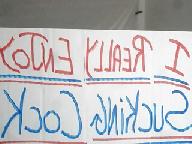 I REALLY ENJOY
SUCKING COCK